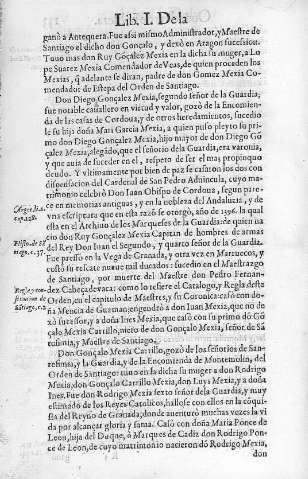 Lib. I. De la
ganò a Antequera. Fue assi mismo Administrador, y Maestre de
Santiago el dicho don Gonçalo, y dexò en Aragon sucession.
Tuuo mas don Ruy Gõçalez Mexia en la dicha su muger, a Lo
pe Suarez Mexia Comendador de Veas, de quien proceden los
Mexias, q̃ adelante se diran, padre de don Gomez Mexia Co-
mendador de Estepa del Orden de Santiago.
Don Diego Gonçalez Mexia, segundo señor de la Guardia,
fue notable cauallero en virtud y valor, gozò de la Encomien-
da de las casas de Cordoua, y de otros heredamientos, sucedio
le su hija doña Mari Garcia Mexia, a quien puso pleyto su pri-
mo don Diego Gonçalez Mexia, hijo mayor de don Diego Gõ
çalez Mexia, alegando, que el señorio de la Guardia, era varonia,
y que auia de suceder en el, respeto de ser el mas propinquo
deudo. Y vltimamente por bien de paz se casaron los dos con
dispensacion del Cardenal de San Pedro Aduincula, cuyo ma-
trimonio celebrò don Iuan Obispo de Cordoua, segun pare-
ce en memorias antiguas, y en la nobleza del Andaluzia, y de
vna escriptura que en esta razõ se otorgò, año de 1396. la qual
esta en el Archiuo de los Marqueses de la Guardia: de quien na
cio don Ruy Gonçalez Mexia Capitan de hombres de armas
del Rey don Iuan el Segundo, y quarto señor de la Guardia.
Fue presso en la Vega de Granada, y otra vez en Marruecos, y
costò su rescate nueue mil ducados: sucedio en el Maestrazgo
de Santiago, por muerte del Maestre don Pedro Fernan-
dez Cabeça de vaca: como lo refiere el Catalogo, y Regla deste
Orden, en el capitulo de Maestres, y su Coronica: casò con do-
ña Mencia de Guzman: engendrò a don Iuan Mexia, que no de
xò sucessor, y a doña Ines Mexia, que casò con su primo dõ Gõ
çalo Mexia Carrillo, nieto de don Gonçalo Mexia, señor de Sã
tofimia, y Maestre de Santiago.
Don Gonçalo Mexia Carrillo, gozò de los señorios de San-
tofimia, y la Guardia, y de la Encomienda de Montemolin, del
Orden de Santiago: tuuo en la dicha su muger a don Rodrigo
Mexia, don Gonçalo Carrillo Mexia, don Luys Mexia, y a doña
Ines. Fue don Rodrigo Mexia sexto señor de la Guardia, y muy
estimado de los Reyes Catolicos, hallose con ellos en la cõquis-
ta del Reyno de Granada: donde auenturò muchas vezes la vi
da por alcançar gloria y fama. Casò con doña Maria Ponce de
Leon, hija del Duque, ò Marques de Cadiz don Rodrigo Pon-
ce de Leon, de cuyo matrimonio nacieron dõ Rodrigo Mexia,
don